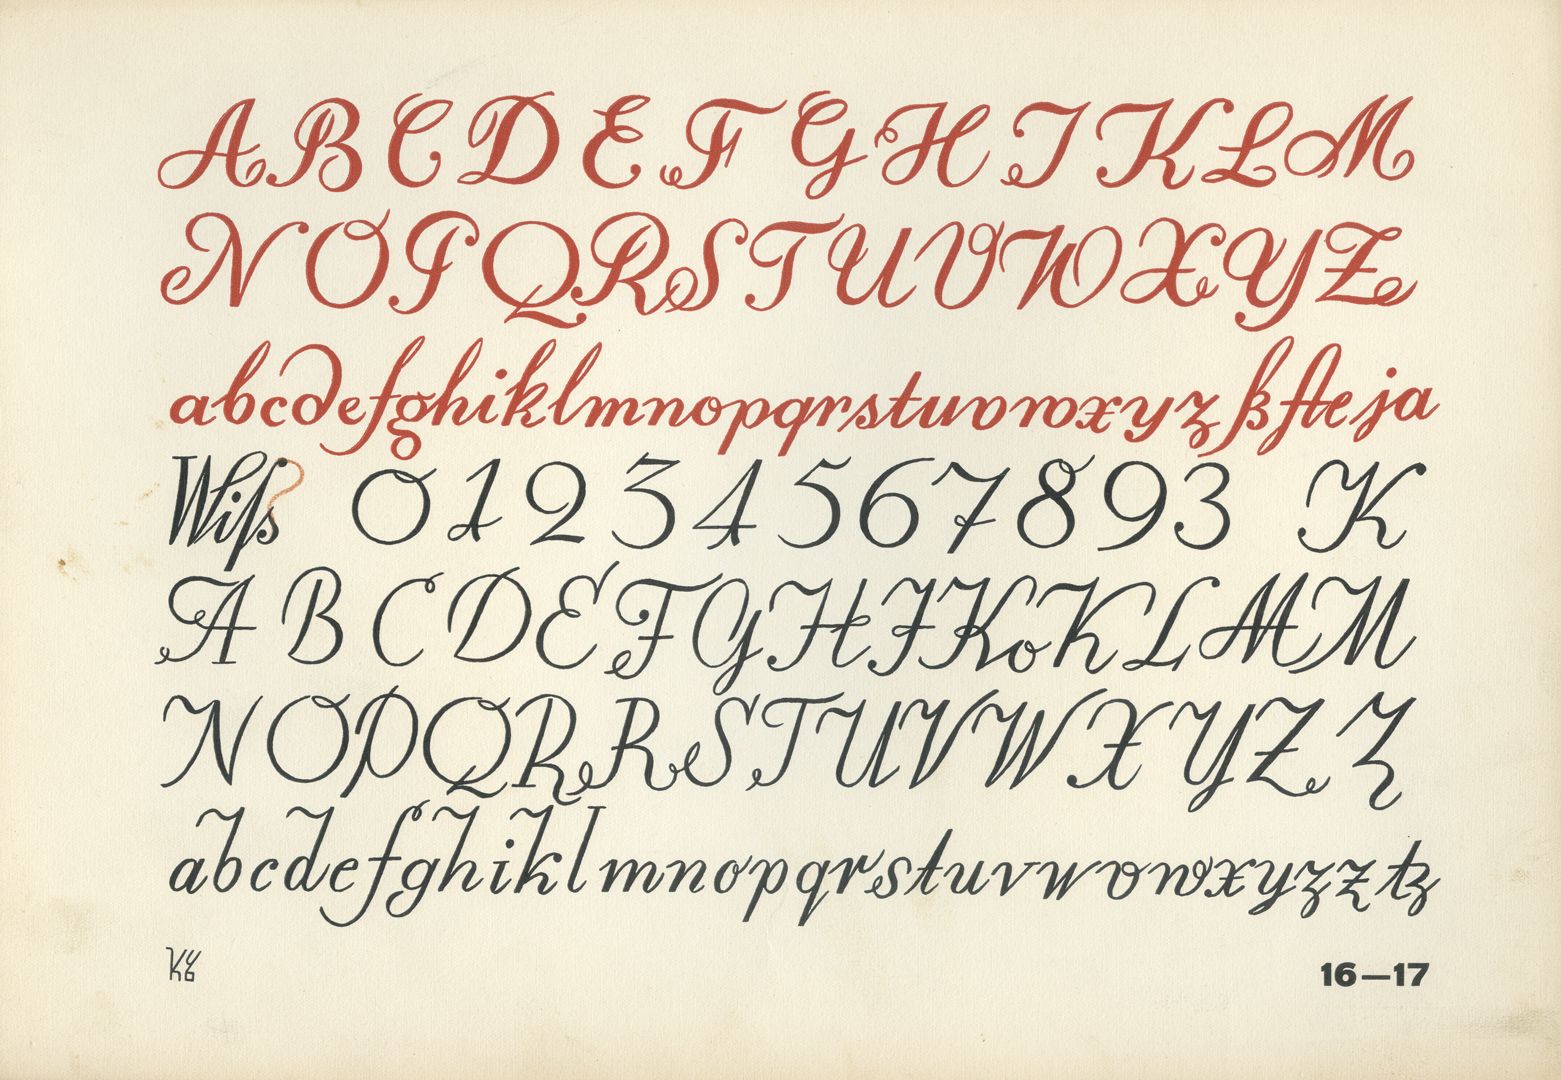 A B C D E F G H I K L M
N O P Q R S T U V W X Y Z
a b c d e f g h i k l m n o p q r s t u v w x y z ß ſt e j a
Wiſs 0 1 2 3 4 5 6 7 8 9 3 K
A B C D E F G H J K o K L M M
N O P Q R R S T U V W X Y Z Z
a b c d e f g h i k l m n o p q r s t u v w v w x y z z tz
16—17